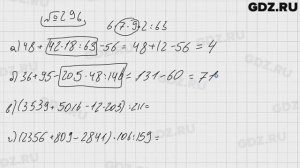 GDZ.RU
№296
6·7·9·2:63
a) 48+42·18:63-56=48+12-56=4
б) 36+95-205·48:164=131-60=71
в) (3539+5016-12·203):211=
г) (2356+809-2841)·106:159=